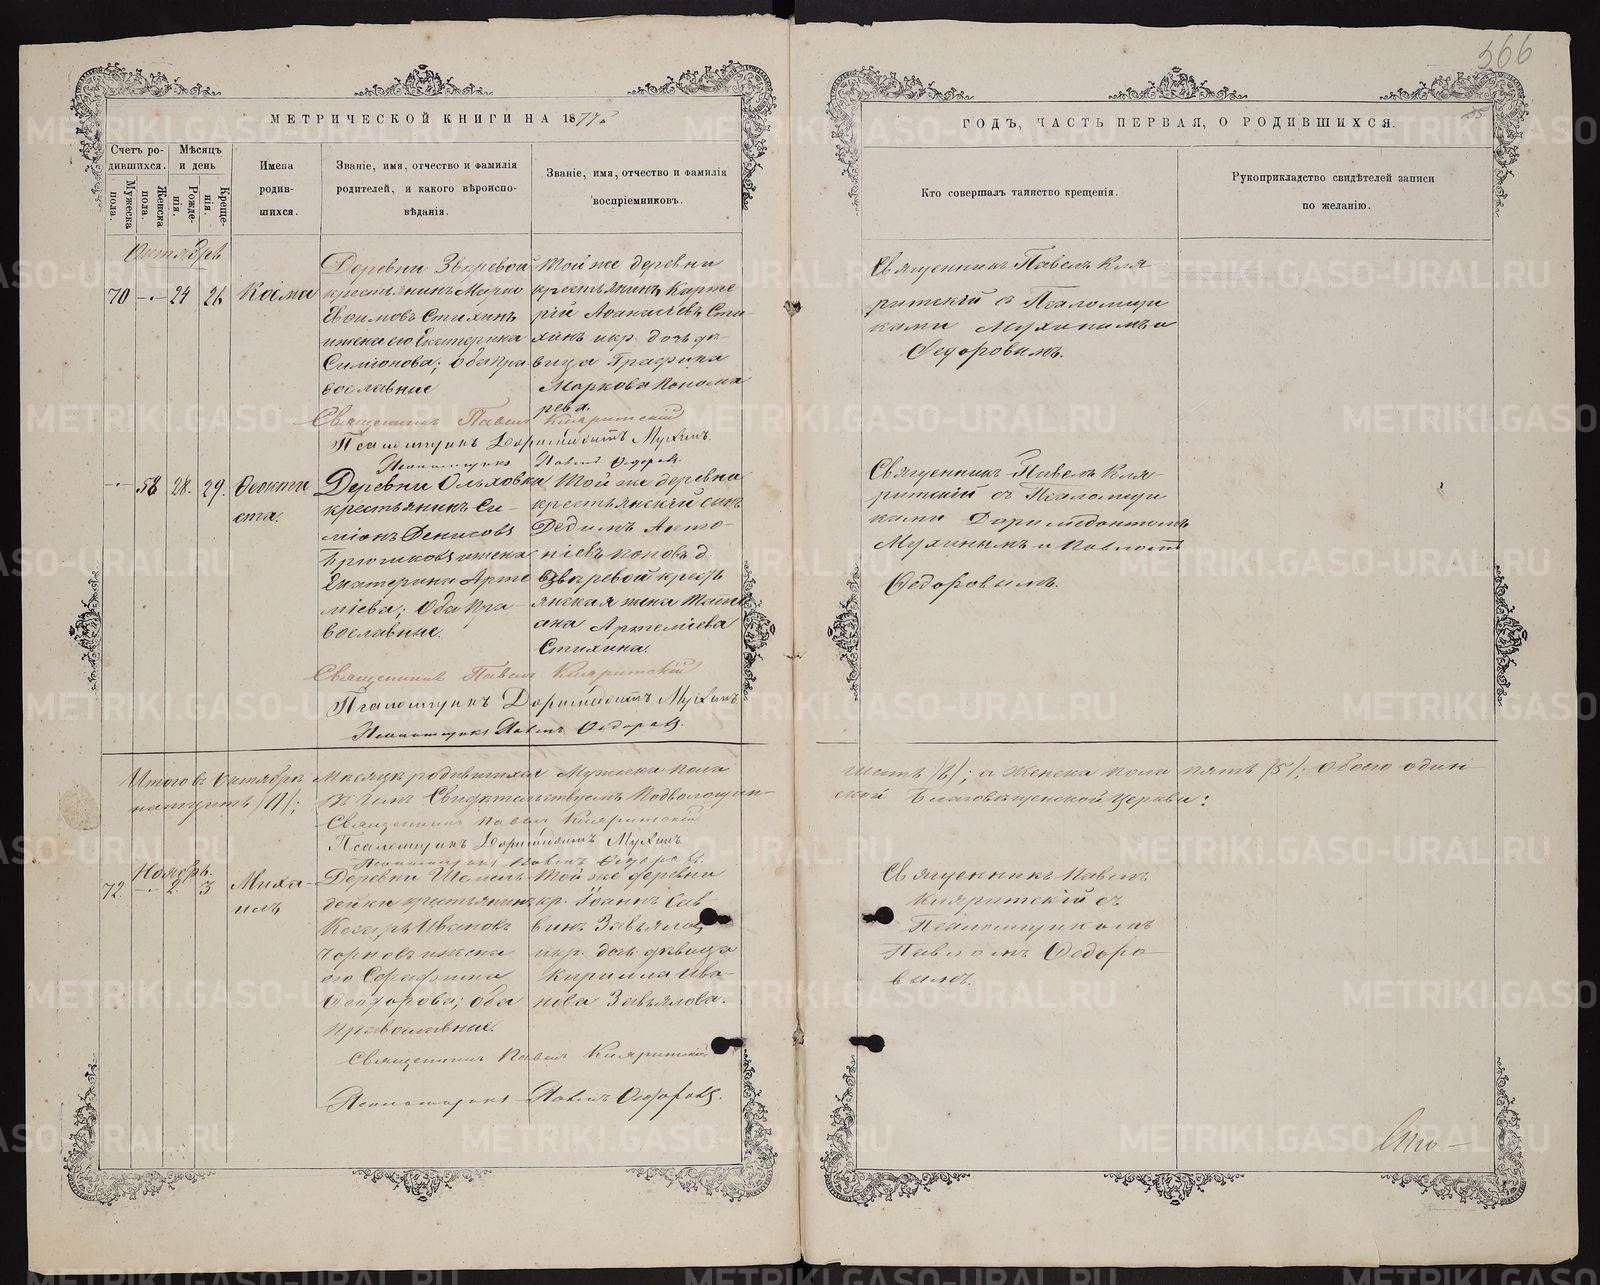 366
МЕТРИЧЕСКОЙ КНИГИ НА 1877
ГОДЪ, ЧАСТЬ ПЕРВАЯ, О РОДИВШИХСЯ.
Счетъ ро-
дившихся.
Мужеска
пола.
Женска
пола.
Мѣсяцъ
и день
Рожде-
нія.
Креще-
нія.
Имена
родив-
шихся.
Званіе, имя, отчество и фамилія
родителей, и какого вѣроиспо-
вѣданія.
Званіе, имя, отчество и фамилія
воспріемниковъ.
Кто совершалъ таинство крещенія.
Рукоприкладство свидѣтелей записи
по желанію.
Октябрь
70 — 24 26
Косма
Деревни Звѣревой
крестьянинъ Марко
Ефимовъ Стихинъ
и жена его Екатерина
Симіонова; оба пра
вославные
Той же деревни
крестьянинъ Карте
рій Аѳанасіевъ Сти-
хинъ и кр. дочь дѣ-
вица
Маркова Понома
рева.
Священникъ Павелъ Кляритскій
Псаломщикъ Доримедонтъ Мухинъ.
Псаломщикъ Павелъ Ѳедоровъ.
Священникъ Павелъ Кля
ритскій съ Псаломщи
ками Мухинымъ и
Ѳедоровымъ.
— 58 28. 29.
Ѳеокти
ста.
Деревни Ольховки
крестьянинъ Си-
міонъ Денисовъ
и жена
Екатерина Арте
міева; оба пра-
вославные.
Той же деревни
крестьянскій сынъ
Анто-
ніевъ Поповъ д.
Звѣревой кресть
янская жена Тать
яна Артеміева
Стихина.
Священникъ Павелъ Кляритскій
Псаломщикъ Доримедонтъ Мухинъ
Псаломщикъ Павелъ Ѳедоровъ.
Священникъ Павелъ Кля-
ритскій съ Псаломщи
ками Доримедонтомъ
Мухинымъ и Павломъ
Ѳедоровымъ.
Итого въ Октябрѣ мѣсяцѣ родившихся мужеска пола шесть /6/; а женска пола пять /5/; обоего один-
надцать /11/; въ чемъ Свидѣтельствуемъ Подволошин-
ской Благовѣщенской церкви:
Священникъ Павелъ Кляритскій
Псаломщикъ Доримедонтъ Мухинъ
Псаломщикъ Павелъ Ѳедоровъ.
Ноябрь.
72. — 2. 3
Миха-
илъ
Деревни
крестьянинъ
Иванов
и жена
его
Ѳеодорова; оба
православные.
Той же деревни
кр. Іоаннъ Сав-
винъ Завьяловъ
и кр. дочь дѣвица
Кирилла Ива-
нова Завьялова.
Священникъ Павелъ Кляритскій
Псаломщикъ Павелъ Ѳедоровъ.
Священникъ Павелъ
Кляритскій съ
Псаломщикомъ
Павломъ Ѳедоро-
вымъ.
METRIKI.GASO-URAL.RU